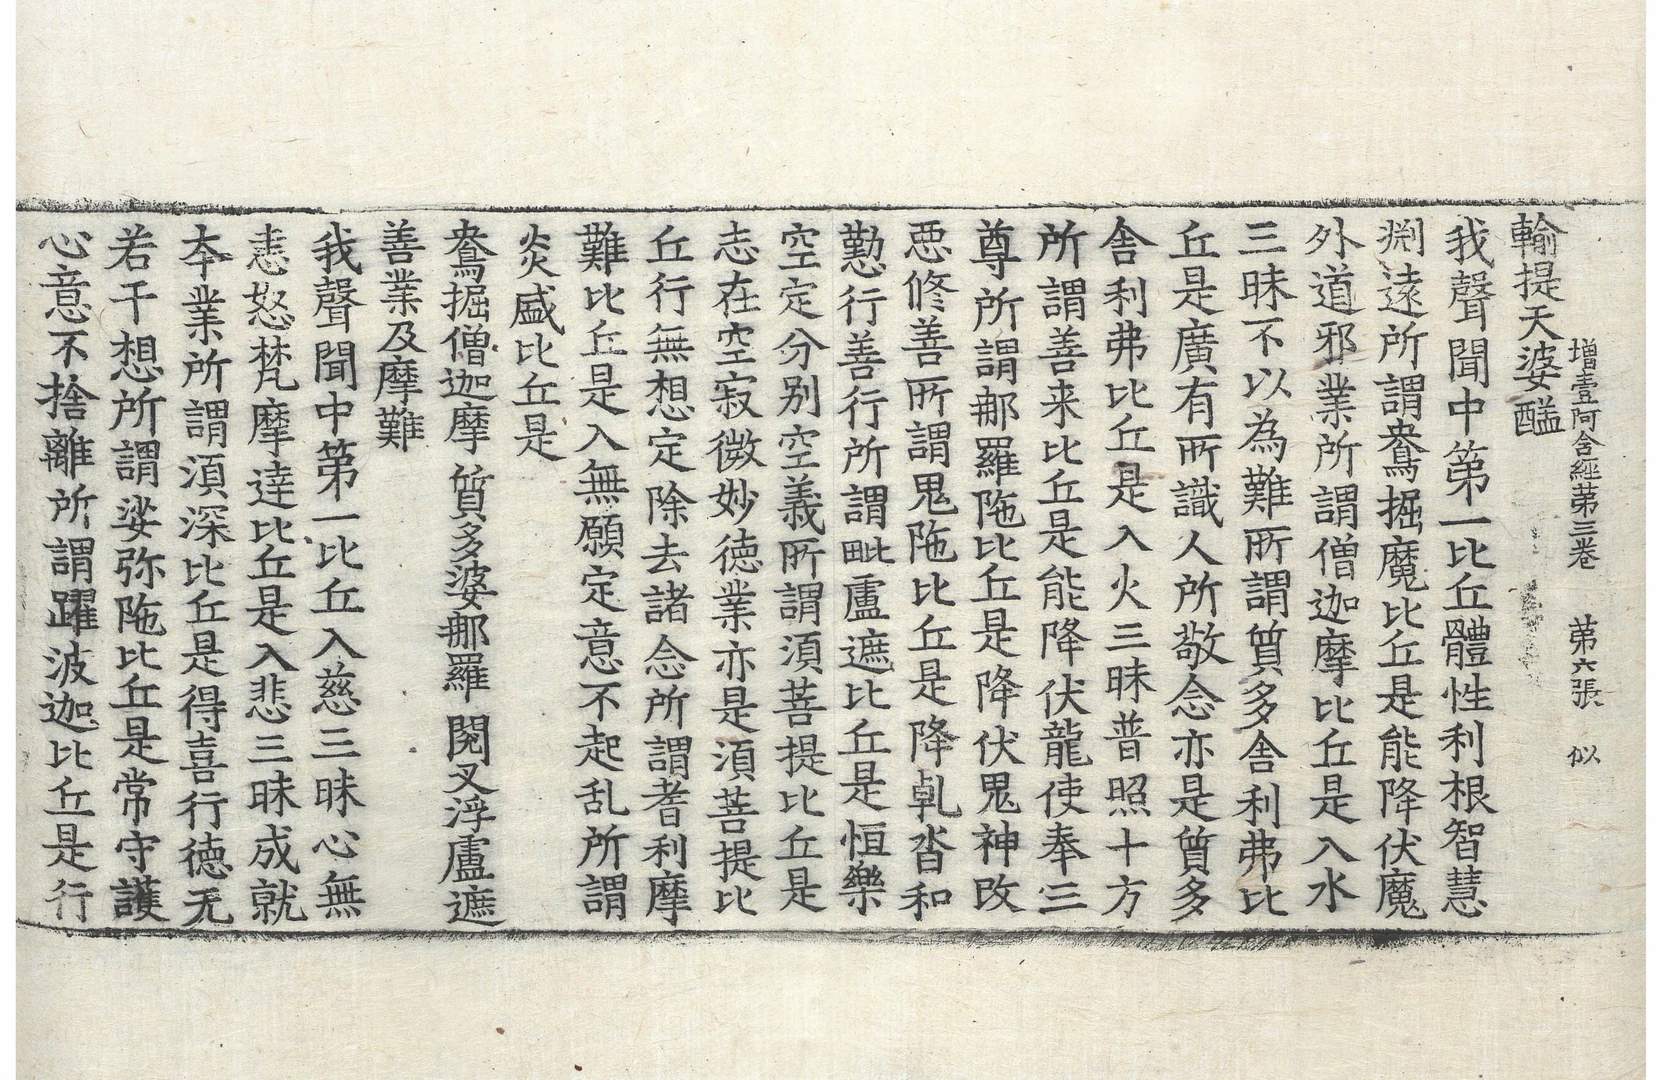 增壹阿含經第三卷 第六張 似
輸提天婆醯
我聲聞中第一比丘體性利根智慧
渕遠所謂鴦掘魔比丘是能降伏魔
外道邪業所謂僧迦摩比丘是入水
三昧不以為難所謂質多舍利弗比
丘是廣有所識人所敬念亦是質多
舎利弗比丘是入火三昧普照十方
所謂善来比丘是能降伏龍使奉三
尊所謂那羅陁比丘是降伏鬼神改
惡修善所謂鬼陁比丘是降乹沓和
懃行善行所謂毗盧遮比丘是恒樂
空定分別空義所謂須菩提比丘是
志在空寂微妙德業亦是須菩提比
丘行無想定除去諸念所謂耆利摩
難比丘是入無願定意不起乱所謂
炎盛比丘是
鴦掘僧迦摩 質多婆那羅 閱叉浮盧遮
善業及摩難
我聲聞中第一比丘入慈三昧心無
恚怒梵摩達比丘是入悲三昧成就
夲業所謂須深比丘是得喜行德无
若干想所謂娑弥陁比丘是常守護
心意不捨離所謂躍波迦比丘是行